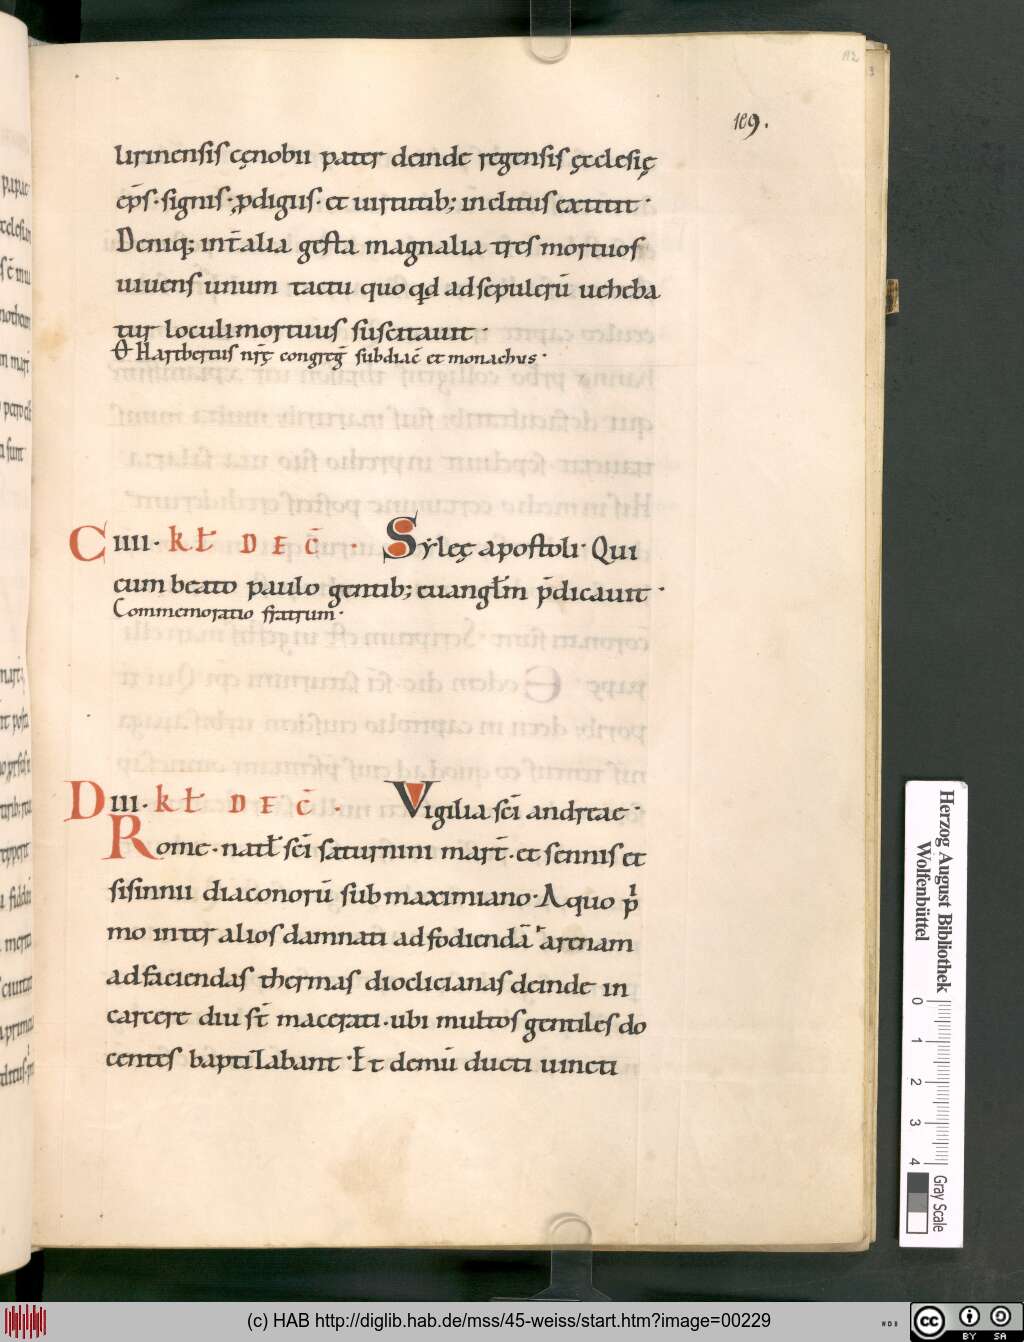 112
3
189.
lirinensis cęnobii pater deinde regensis ęcclesię
ep̄s · signis · ꝓdigiis · et uirtutib; inclitus extitit ·
Deniq; int̄ alia gesta magnalia tres mortuos
uiuens unum tactu quoq̨d ad sepulcrū ueheba
tur loculi mortuus suscitauit ·
Θ Hartbertus nr̄ę congreḡ subdiac̄ et monachus ·
C IIII · kł DEC̄ · Sẏleę apostoli · Qui
cum beato paulo gentib; euangłm p̄dicauit ·
Commemoratio fratrum ·
D III · kł DEC̄ · Vigilia sc̄i andreae ·
Rome · natł sc̄i saturnini mart̄ · et sennis et
sisinnii diaconorū sub maximiano · A quo pͥ
mo inter alios damnati ad fodiendā arenam
ad faciendas thermas dioclicianas deinde in
carcere diu st̄ macerati · ubi multos gentiles do
centes baptizabant · Et demū ducti uincti
Herzog August Bibliothek
Wolfenbüttel
0 1 2 3 4
Gray Scale
(c) HAB http://diglib.hab.de/mss/45-weiss/start.htm?image=00229
WDB
cc BY SA